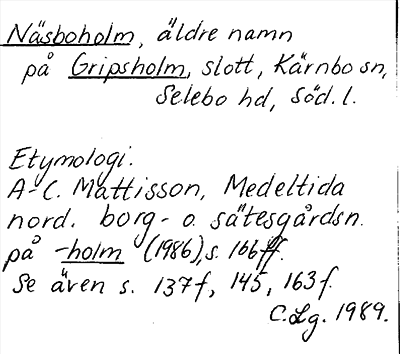 Näsboholm, äldre namn
på Gripsholm, slott, Kärnbo sn,
Selebo hd, Söd. l.
Etymologi.
A-C. Mattisson, Medeltida
nord. borg- o. sätesgårdsn.
på -holm (1986), s. 166ff.
Se även s. 137f, 145, 163f.
C.Lg. 1989.